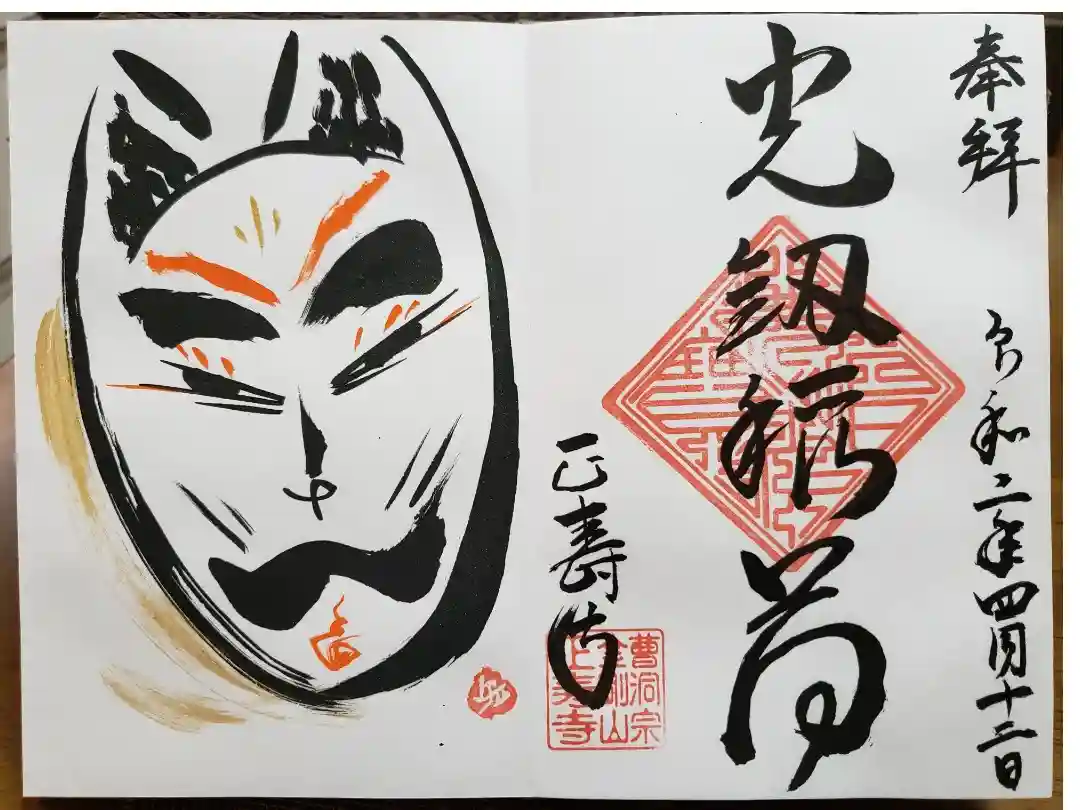 奉拝
令和二年四月十三日
光釼稲荷
正壽寺
曹洞宗
金剛山
正寿寺